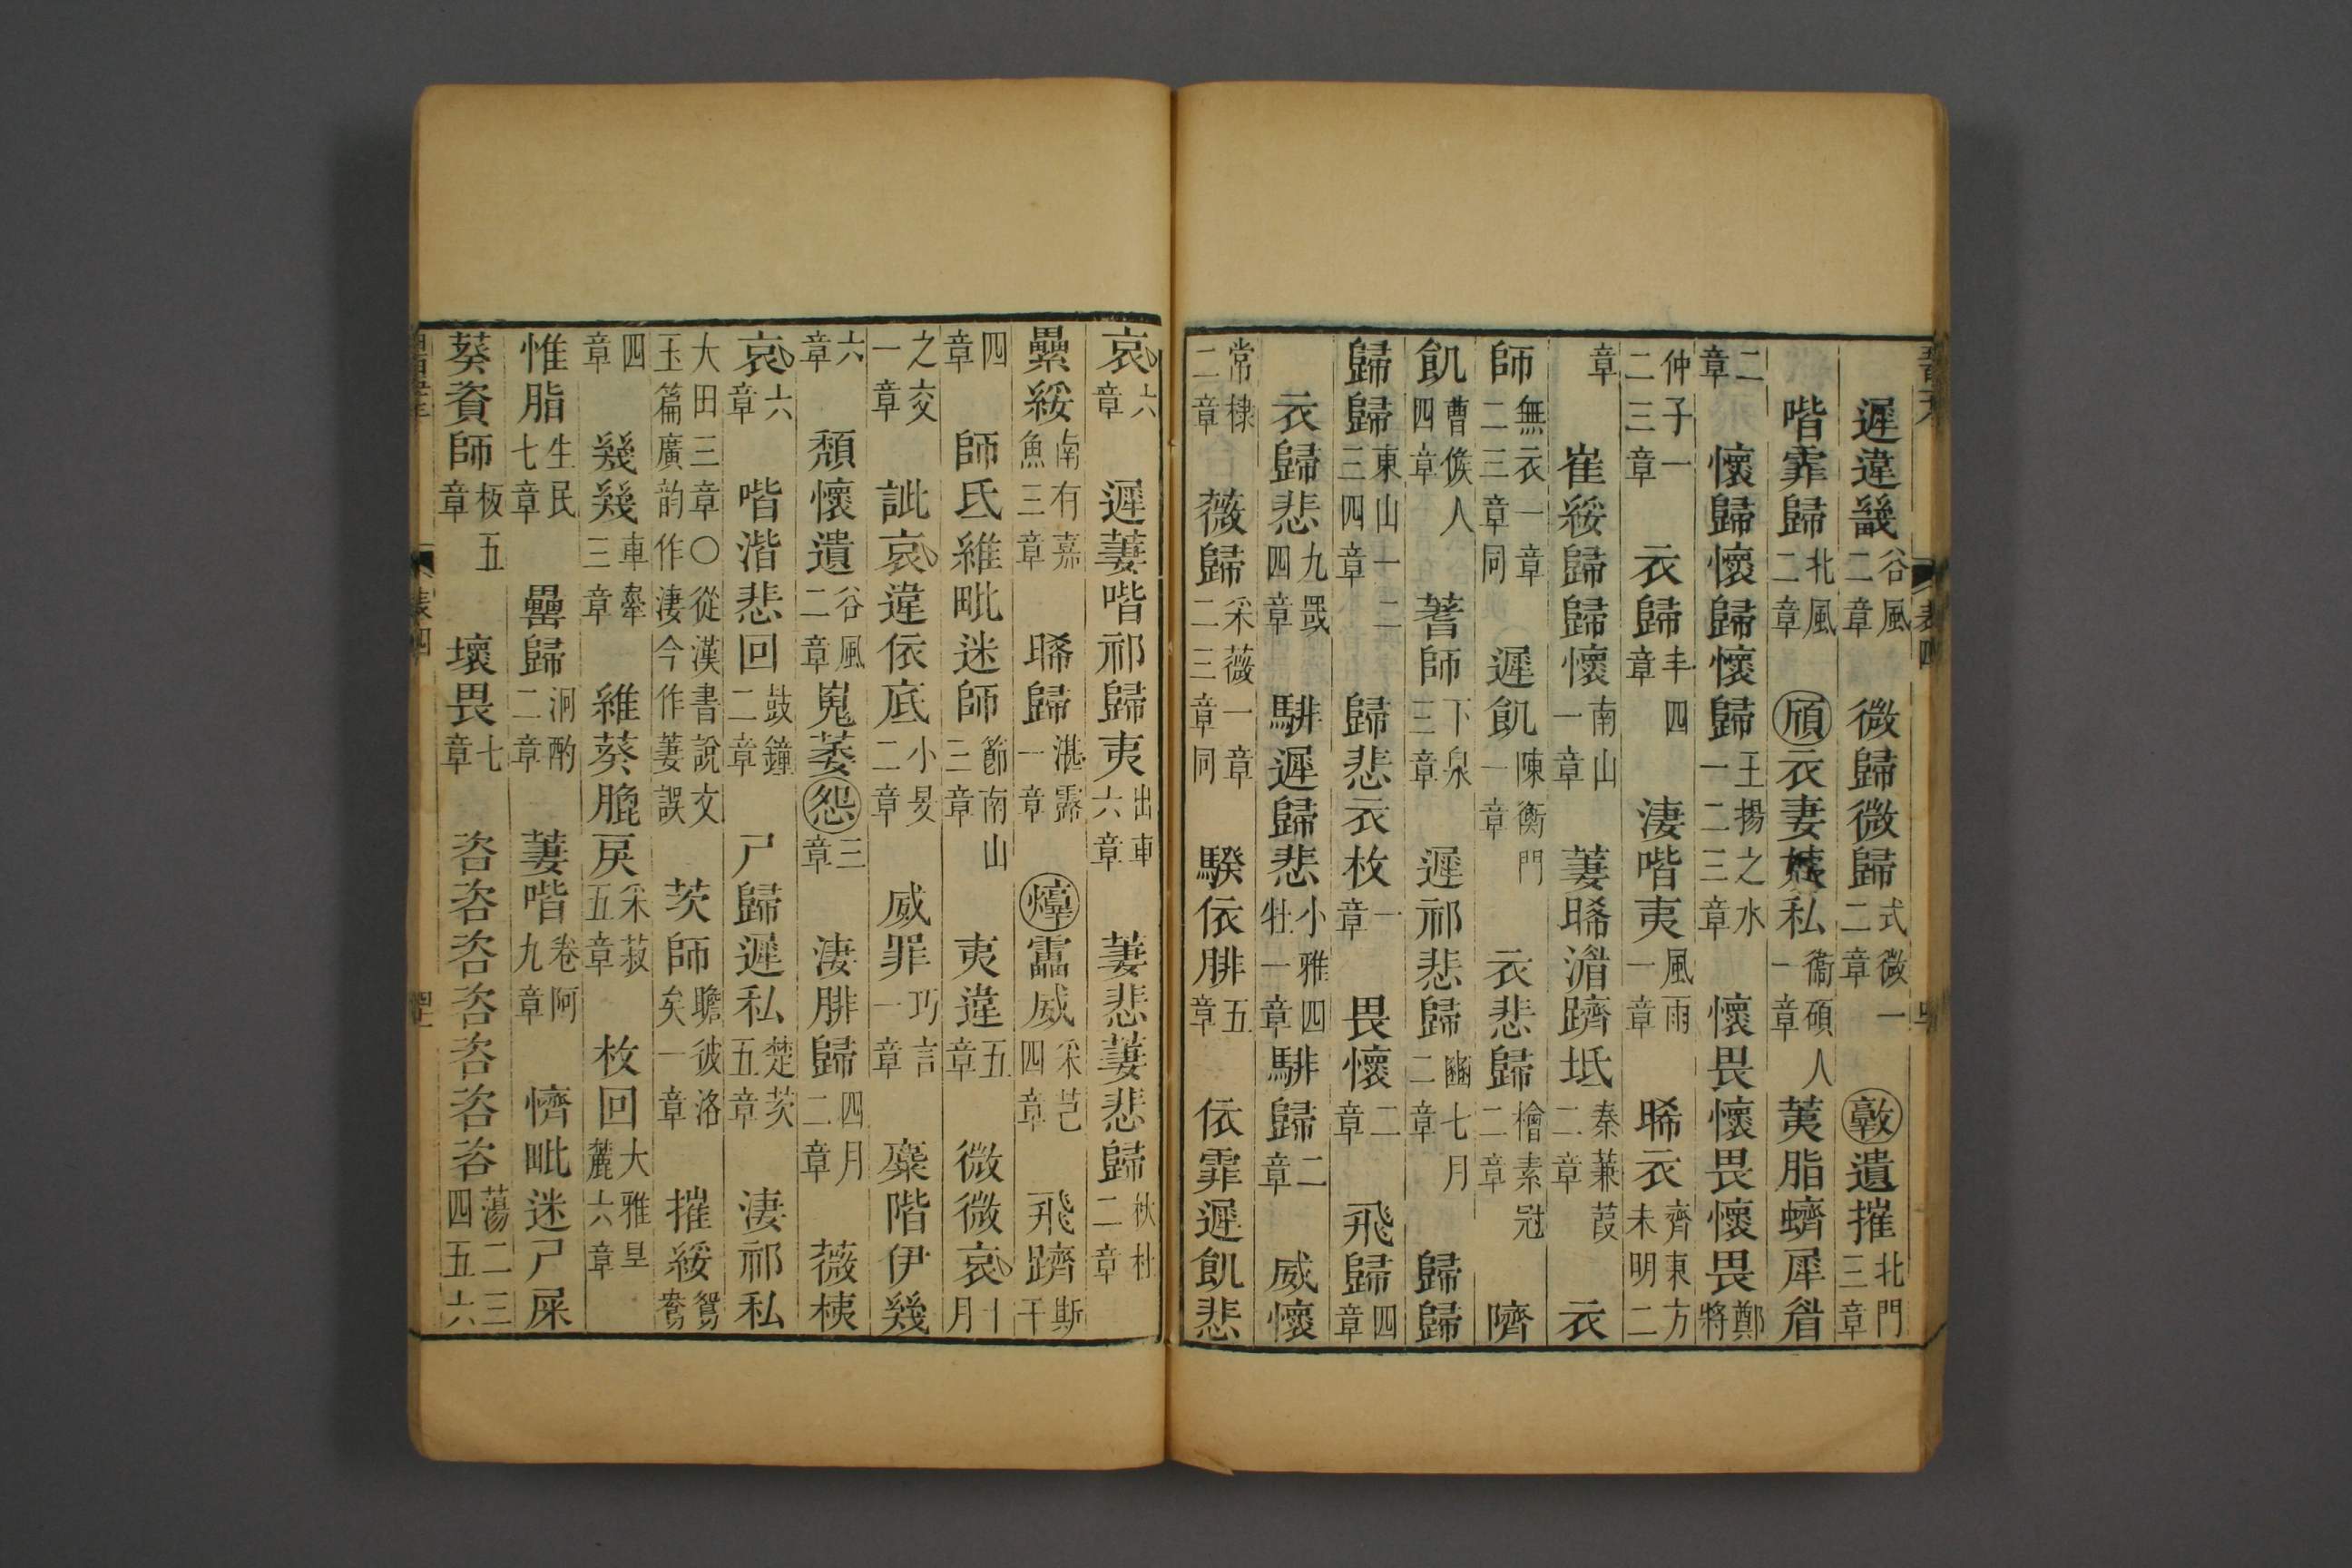 遲違畿谷風二章 微歸微歸式微一二章 敦遺摧北門三章
喈霏歸北風二章 頎衣妻姨私衞碩人一章 荑脂蠐犀眉
二章 懷歸懷歸懷歸王揚之水一二三章 懷畏懷畏懷畏鄭將
仲子一二三章 衣歸丰四章 淒喈夷風雨一章 晞衣齊東方未明二
章 崔綏歸歸懷南山一章 萋晞湄躋坻秦蒹葭二章 衣
師無衣一章二三章同 遲飢陳衡門一章 衣悲歸檜素冠二章 隮
飢曹候人四章 蓍師下泉三章 遲祁悲歸豳七月二章 歸歸
歸歸東山一二三四章 歸悲衣枚一章 畏懷二章 飛歸四章
衣歸悲九罭四章 騑遲歸悲小雅四牡一章 騑歸二章 威懷
常棣二章 薇歸采薇一章二三章同 騤依腓五章 依霏遲飢悲
哀六章 遲萋喈祁歸夷出車六章 萋悲萋悲歸杕杜二章
纍綏南有嘉魚三章 晞歸湛露一章 焞靁威采芑四章 飛躋斯干
四章 師氐維毗迷師節南山三章 夷違五章 微微哀十月
之交一章 訿哀違依底小旻二章 威罪巧言一章 麋階伊幾
六章 頹懷遺谷風二章 嵬萎怨三章 淒腓歸四月二章 薇桋
哀六章 喈湝悲回鼓鐘二章 尸歸遲私楚茨五章 淒祁私
大田三章〇從漢書說文玉篇廣韵作淒今作萋誤 茨師瞻彼洛矣一章 摧綏鴛鴦
四章 幾幾車舝三章 維葵膍戾采菽五章 枚回大雅旱麓六章
惟脂生民七章 罍歸泂酌二章 萋喈卷阿九章 懠毗迷尸屎
葵資師板五章 壞畏七章 咨咨咨咨咨咨咨蕩二三四五六